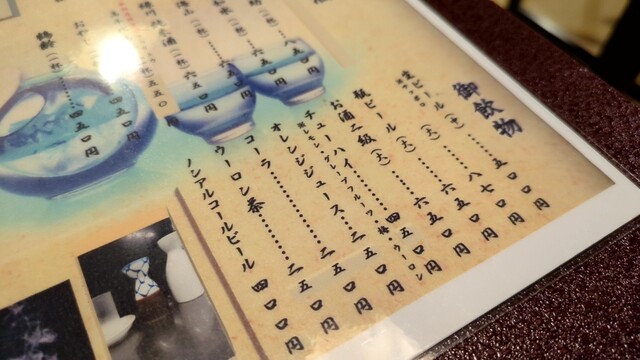 御飲物
生ビール(中)……五〇〇円
(大)……八七〇円
瓶ビール(大)……六五〇円
お酒二級(大)……六五〇円
チューハイ……四五〇円
グレープフルーツ・梅・ウーロン
オレンジジュース……二五〇円
コーラ……二五〇円
ウーロン茶……二五〇円
ノンアルコールビール 四〇〇円
(一杯)……八五〇円
(一杯)……六五〇円
山(一杯)……六五〇円
川純米酒(一杯)五五〇円
おや 四五〇円
鶴齢(一杯)……四五〇円